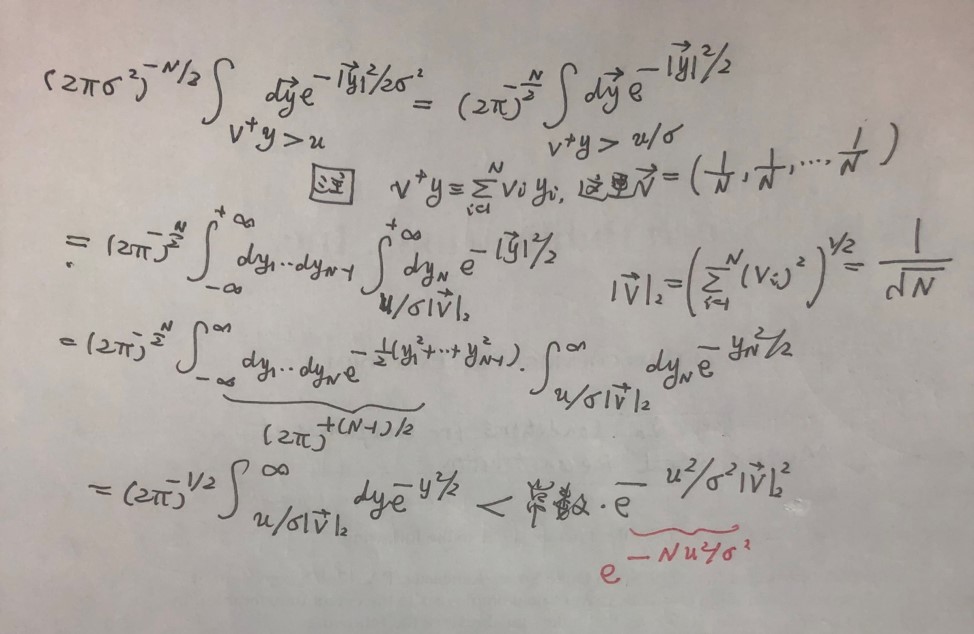 (2πσ²)^{-N/2} ∫_{v⁺y>u} dy⃗ e^{-|y⃗|²/2σ²} = (2π)^{-N/2} ∫_{v⁺y>u/σ} dy⃗ e^{-|y⃗|²/2}
注 v⁺y ≡ Σ_{i=1}^{N} vi yi, 这里 v⃗ = (1/N, 1/N, ..., 1/N)
= (2π)^{-N/2} ∫_{-∞}^{+∞} dy₁··dy_{N-1} ∫_{u/σ|v⃗|₂}^{+∞} dy_N e^{-|y⃗|²/2} |v⃗|₂ = (Σ_{i=1}^{N} (vi)²)^{1/2} = 1/√N
= (2π)^{-N/2} ∫_{-∞}^{∞} dy₁··dy_N e^{-½(y₁²+··+y²_{N-1})} · ∫_{u/σ|v⃗|₂}^{∞} dy_N e^{-y_N²/2}
(2π)^{+(N-1)/2}
= (2π)^{-1/2} ∫_{u/σ|v⃗|₂}^{∞} dy e^{-y²/2} < 常数 · e^{-u²/σ²|v⃗|₂²}
e^{-Nu²/σ²}